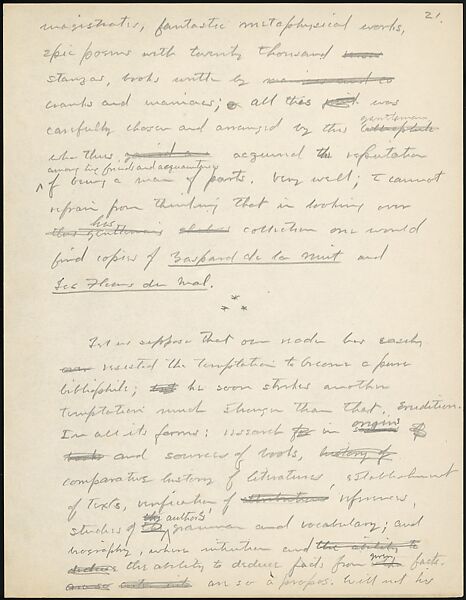 21.
magistrates, fantastic metaphysical works,
epic poems with twenty thousand
stanzas, books writte by
cranks and maniacs; all this was
carefully chosen and arranged by this gentleman
who thus acquired the reputation
among his friends and acquaintances
of being a man of parts. Very well; I cannot
refrain from thinking that in looking over
his collection one would
find copies of Gaspard de la Nuit and
Les Fleurs du Mal.
* * *
Let us suppose that our reader has easily
resisted the temptation to become a pure
bibliophile; he soon strikes another
temptation much stronger than that. Erudition.
In all its forms: research in origins
and sources of books,
comparative history of literatures, establishment
of texts, verification of references,
studies of authors' grammar and vocabulary; and
biography, where intuition and
the ability to deduce facts from given facts.
are so à propos. Will not his